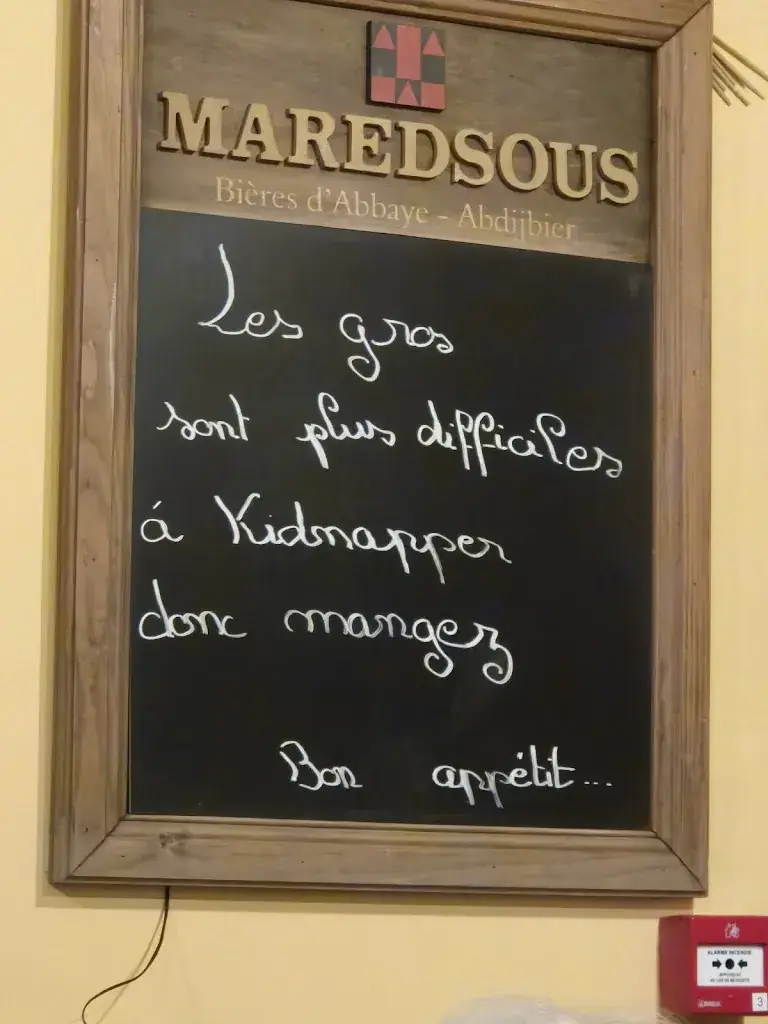 MAREDSOUS
Bières d'Abbaye - Abdijbier
Les gros
sont plus difficiles
à Kidnapper
donc mangez
Bon appétit...
ALARME INCENDIE
3